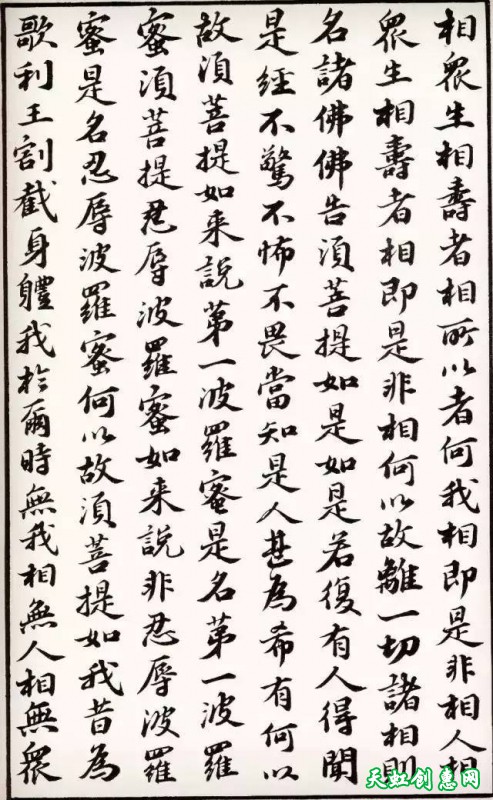 相衆生相壽者相所以者何我相即是非相人相
衆生相壽者相即是非相何以故離一切諸相則
名諸佛佛告須菩提如是如是若復有人得聞
是經不驚不怖不畏當知是人甚為希有何以
故須菩提如来說第一波羅蜜是名第一波羅
蜜須菩提忍辱波羅蜜如来說非忍辱波羅
蜜是名忍辱波羅蜜何以故須菩提如我昔為
歌利王割截身體我於爾時無我相無人相無衆
天虹创惠网